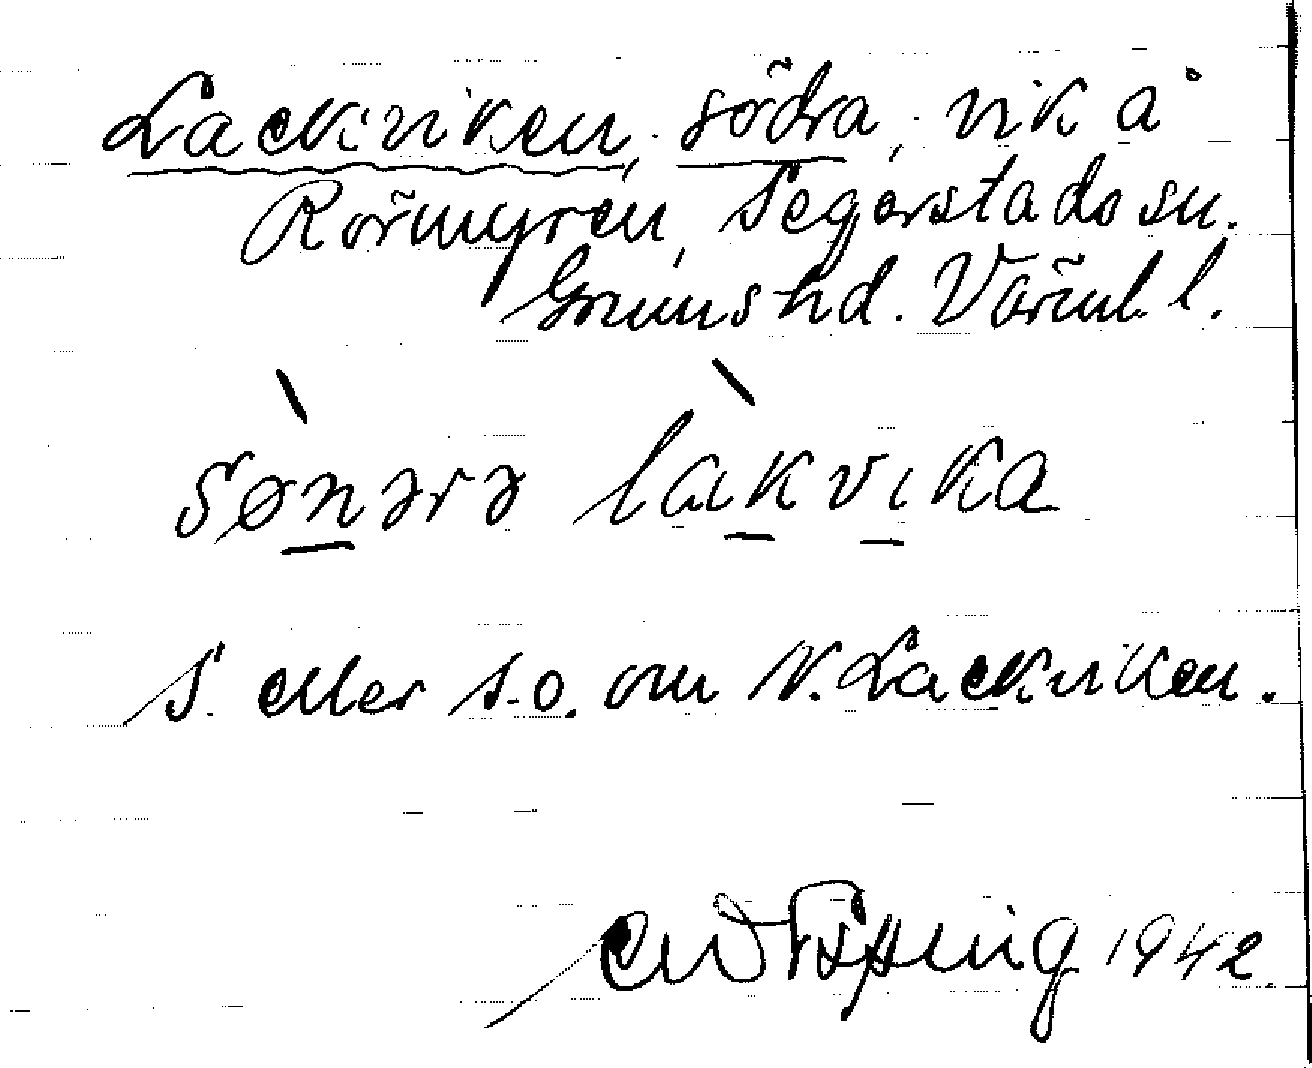 Lackviken, södra, vik å
Rörmyren, Segerstads sn.
Grums hd. Värml. l.
sønərə lakvika
S. eller s.o. om N. Lackviken.
1942